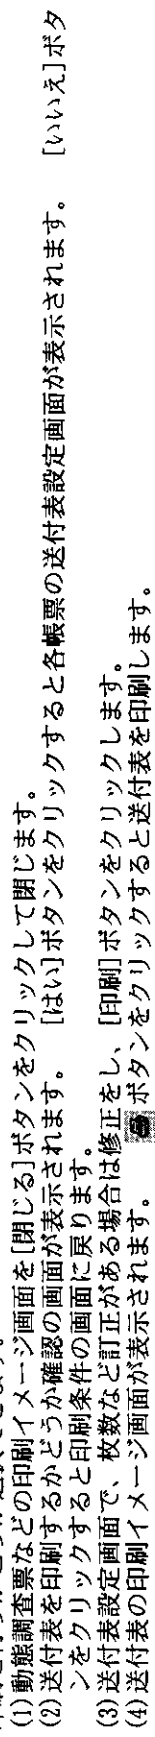 (1)動態調査票などの印刷イメージ画面を[閉じる]ボタンをクリックして閉じます。
(2)送付表を印刷するかどうか確認の画面が表示されます。 [はい]ボタンをクリックすると各帳票の送付表設定画面が表示されます。 [いいえ]ボタ
ンをクリックすると印刷条件の画面に戻ります。
(3)送付表設定画面で、枚数など訂正がある場合は修正をし、[印刷]ボタンをクリックします。
(4)送付表の印刷イメージ画面が表示されます。 ボタンをクリックすると送付表を印刷します。